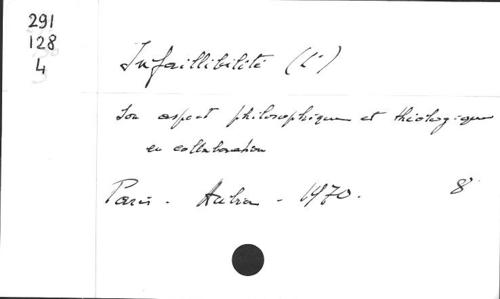 291
128
4
Infaillibilité (L')
Son aspect philosophique et théologique
en collaboration
Paris - Aubier - 1970. 8°